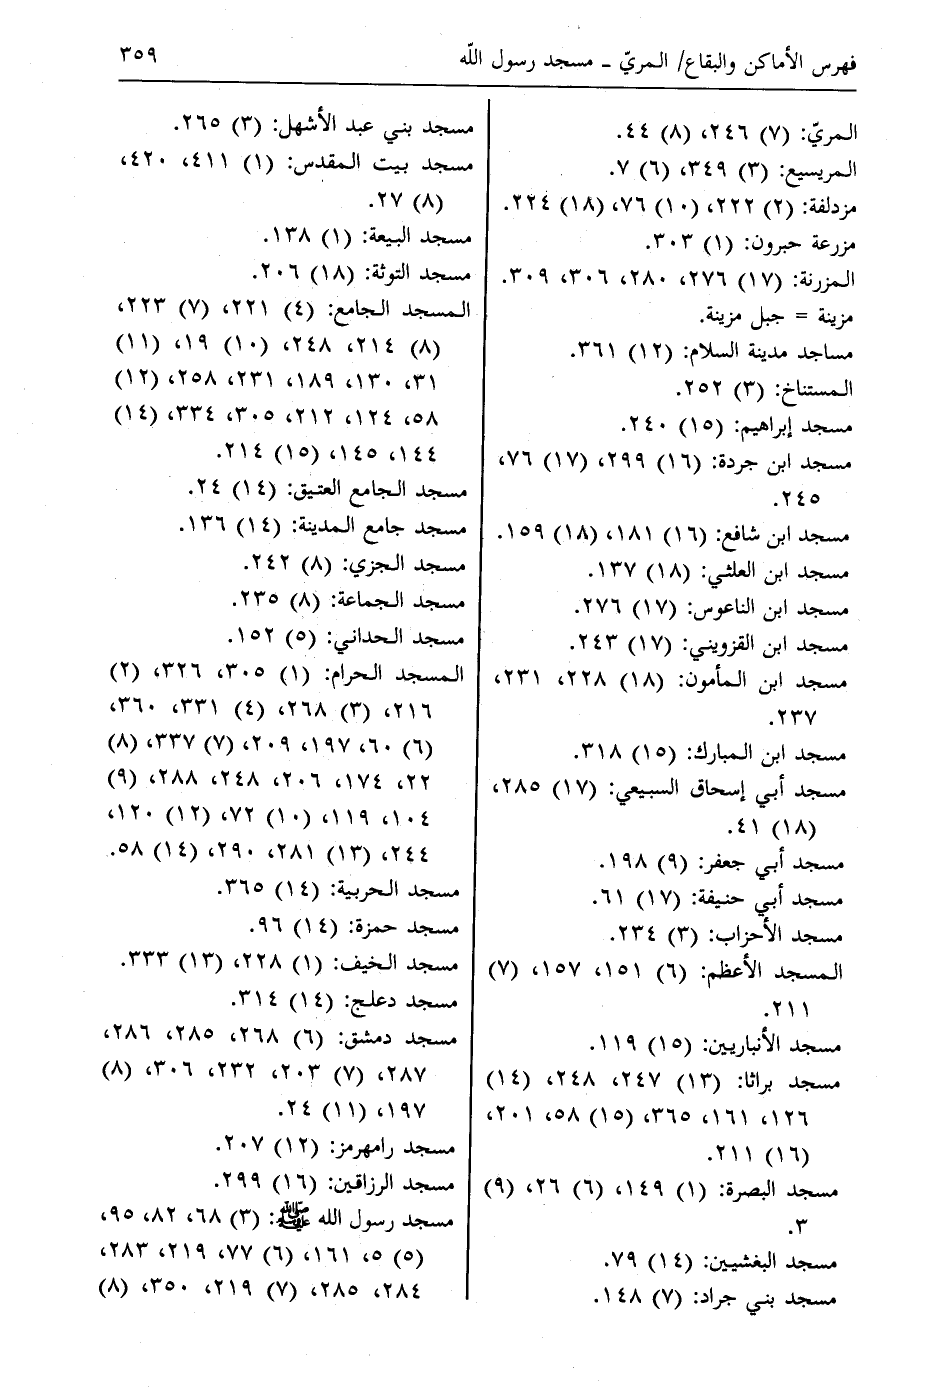 فهرس الأماكن والبقاع/ المريّ ـ مسجد رسول الله
٣٥٩
المريّ: (٧) ٢٤٦، (٨) ٤٤.
المريسيع: (٣) ٣٤٩، (٦) ٧.
مزدلفة: (٢) ٢٢٢، (١٠) ٧٦، (١٨) ٢٢٤.
مزرعة حبرون: (١) ٣٠٣.
المزرنة: (١٧) ٢٧٦، ٢٨٠، ٣٠٦، ٣٠٩.
مزينة = جبل مزينة.
مساجد مدينة السلام: (١٢) ٣٦١.
المستناخ: (٣) ٢٥٢.
مسجد إبراهيم: (١٥) ٢٤٠.
مسجد ابن جردة: (١٦) ٢٩٩، (١٧) ٧٦،
٢٤٥.
مسجد ابن شافع: (١٦) ١٨١، (١٨) ١٥٩.
مسجد ابن العلثي: (١٨) ١٣٧.
مسجد ابن الناعوس: (١٧) ٢٧٦.
مسجد ابن القزويني: (١٧) ٢٤٣.
مسجد ابن المأمون: (١٨) ٢٢٨، ٢٣١،
٢٣٧.
مسجد ابن المبارك: (١٥) ٣١٨.
مسجد أبي إسحاق السبيعي: (١٧) ٢٨٥،
(١٨) ٤١.
مسجد أبي جعفر: (٩) ١٩٨.
مسجد أبي حنيفة: (١٧) ٦١.
مسجد الأحزاب: (٣) ٢٣٤.
المسجد الأعظم: (٦) ١٥١، ١٥٧، (٧)
٢١١.
مسجد الأنباريين: (١٥) ١١٩.
مسجد براثا: (١٣) ٢٤٧، ٢٤٨، (١٤)
١٢٦، ١٦١، ٣٦٥، (١٥) ٥٨، ٢٠١،
(١٦) ٢١١.
مسجد البصرة: (١) ١٤٩، (٦) ٢٦، (٩)
٣.
مسجد البغشيين: (١٤) ٧٩.
مسجد بني جراد: (٧) ١٤٨.
مسجد بني عبد الأشهل: (٣) ٢٦٥.
مسجد بيت المقدس: (١) ٤١١، ٤٢٠،
(٨) ٢٧.
مسجد البيعة: (١) ١٣٨.
مسجد التوثة: (١٨) ٢٠٦.
المسجد الجامع: (٤) ٢٢١، (٧) ٢٢٣،
(٨) ٢١٤، ٢٤٨، (١٠) ١٩، (١١)
٣١، ١٣٠، ١٨٩، ٢٣١، ٢٥٨، (١٢)
٥٨، ١٢٤، ٢١٢، ٣٠٥، ٣٣٤، (١٤)
١٤٤، ١٤٥، (١٥) ٢١٤.
مسجد الجامع العتيق: (١٤) ٢٤.
مسجد جامع المدينة: (١٤) ١٣٦.
مسجد الجزي: (٨) ٢٤٢.
مسجد الجماعة: (٨) ٢٣٥.
مسجد الحداني: (٥) ١٥٢.
المسجد الحرام: (١) ٣٠٥، ٣٢٦، (٢)
٢١٦، (٣) ٢٦٨، (٤) ٣٣١، ٣٦٠،
(٦) ٦٠، ١٩٧، ٢٠٩، (٧) ٣٣٧، (٨)
٢٢، ١٧٤، ٢٠٦، ٢٤٨، ٢٨٨، (٩)
١٠٤، ١١٩، (١٠) ٧٢، (١٢) ١٢٠،
٢٤٤، (١٣) ٢٨١، ٢٩٠، (١٤) ٥٨.
مسجد الحربية: (١٤) ٣٦٥.
مسجد حمزة: (١٤) ٩٦.
مسجد الخيف: (١) ٢٢٨، (١٣) ٣٣٣.
مسجد دعلج: (١٤) ٣١٤.
مسجد دمشق: (٦) ٢٦٨، ٢٨٥، ٢٨٦،
٢٨٧، (٧) ٢٠٣، ٢٣٢، ٣٠٦، (٨)
١٩٧، (١١) ٢٤.
مسجد رامهرمز: (١٢) ٢٠٧.
مسجد الرزاقين: (١٦) ٢٩٩.
مسجد رسول الله ﷺ: (٣) ٦٨، ٨٢، ٩٥،
(٥) ٥، ١٦١، (٦) ٧٧، ٢١٩، ٢٨٣،
٢٨٤، ٢٨٥، (٧) ٢١٩، ٣٥٠، (٨)